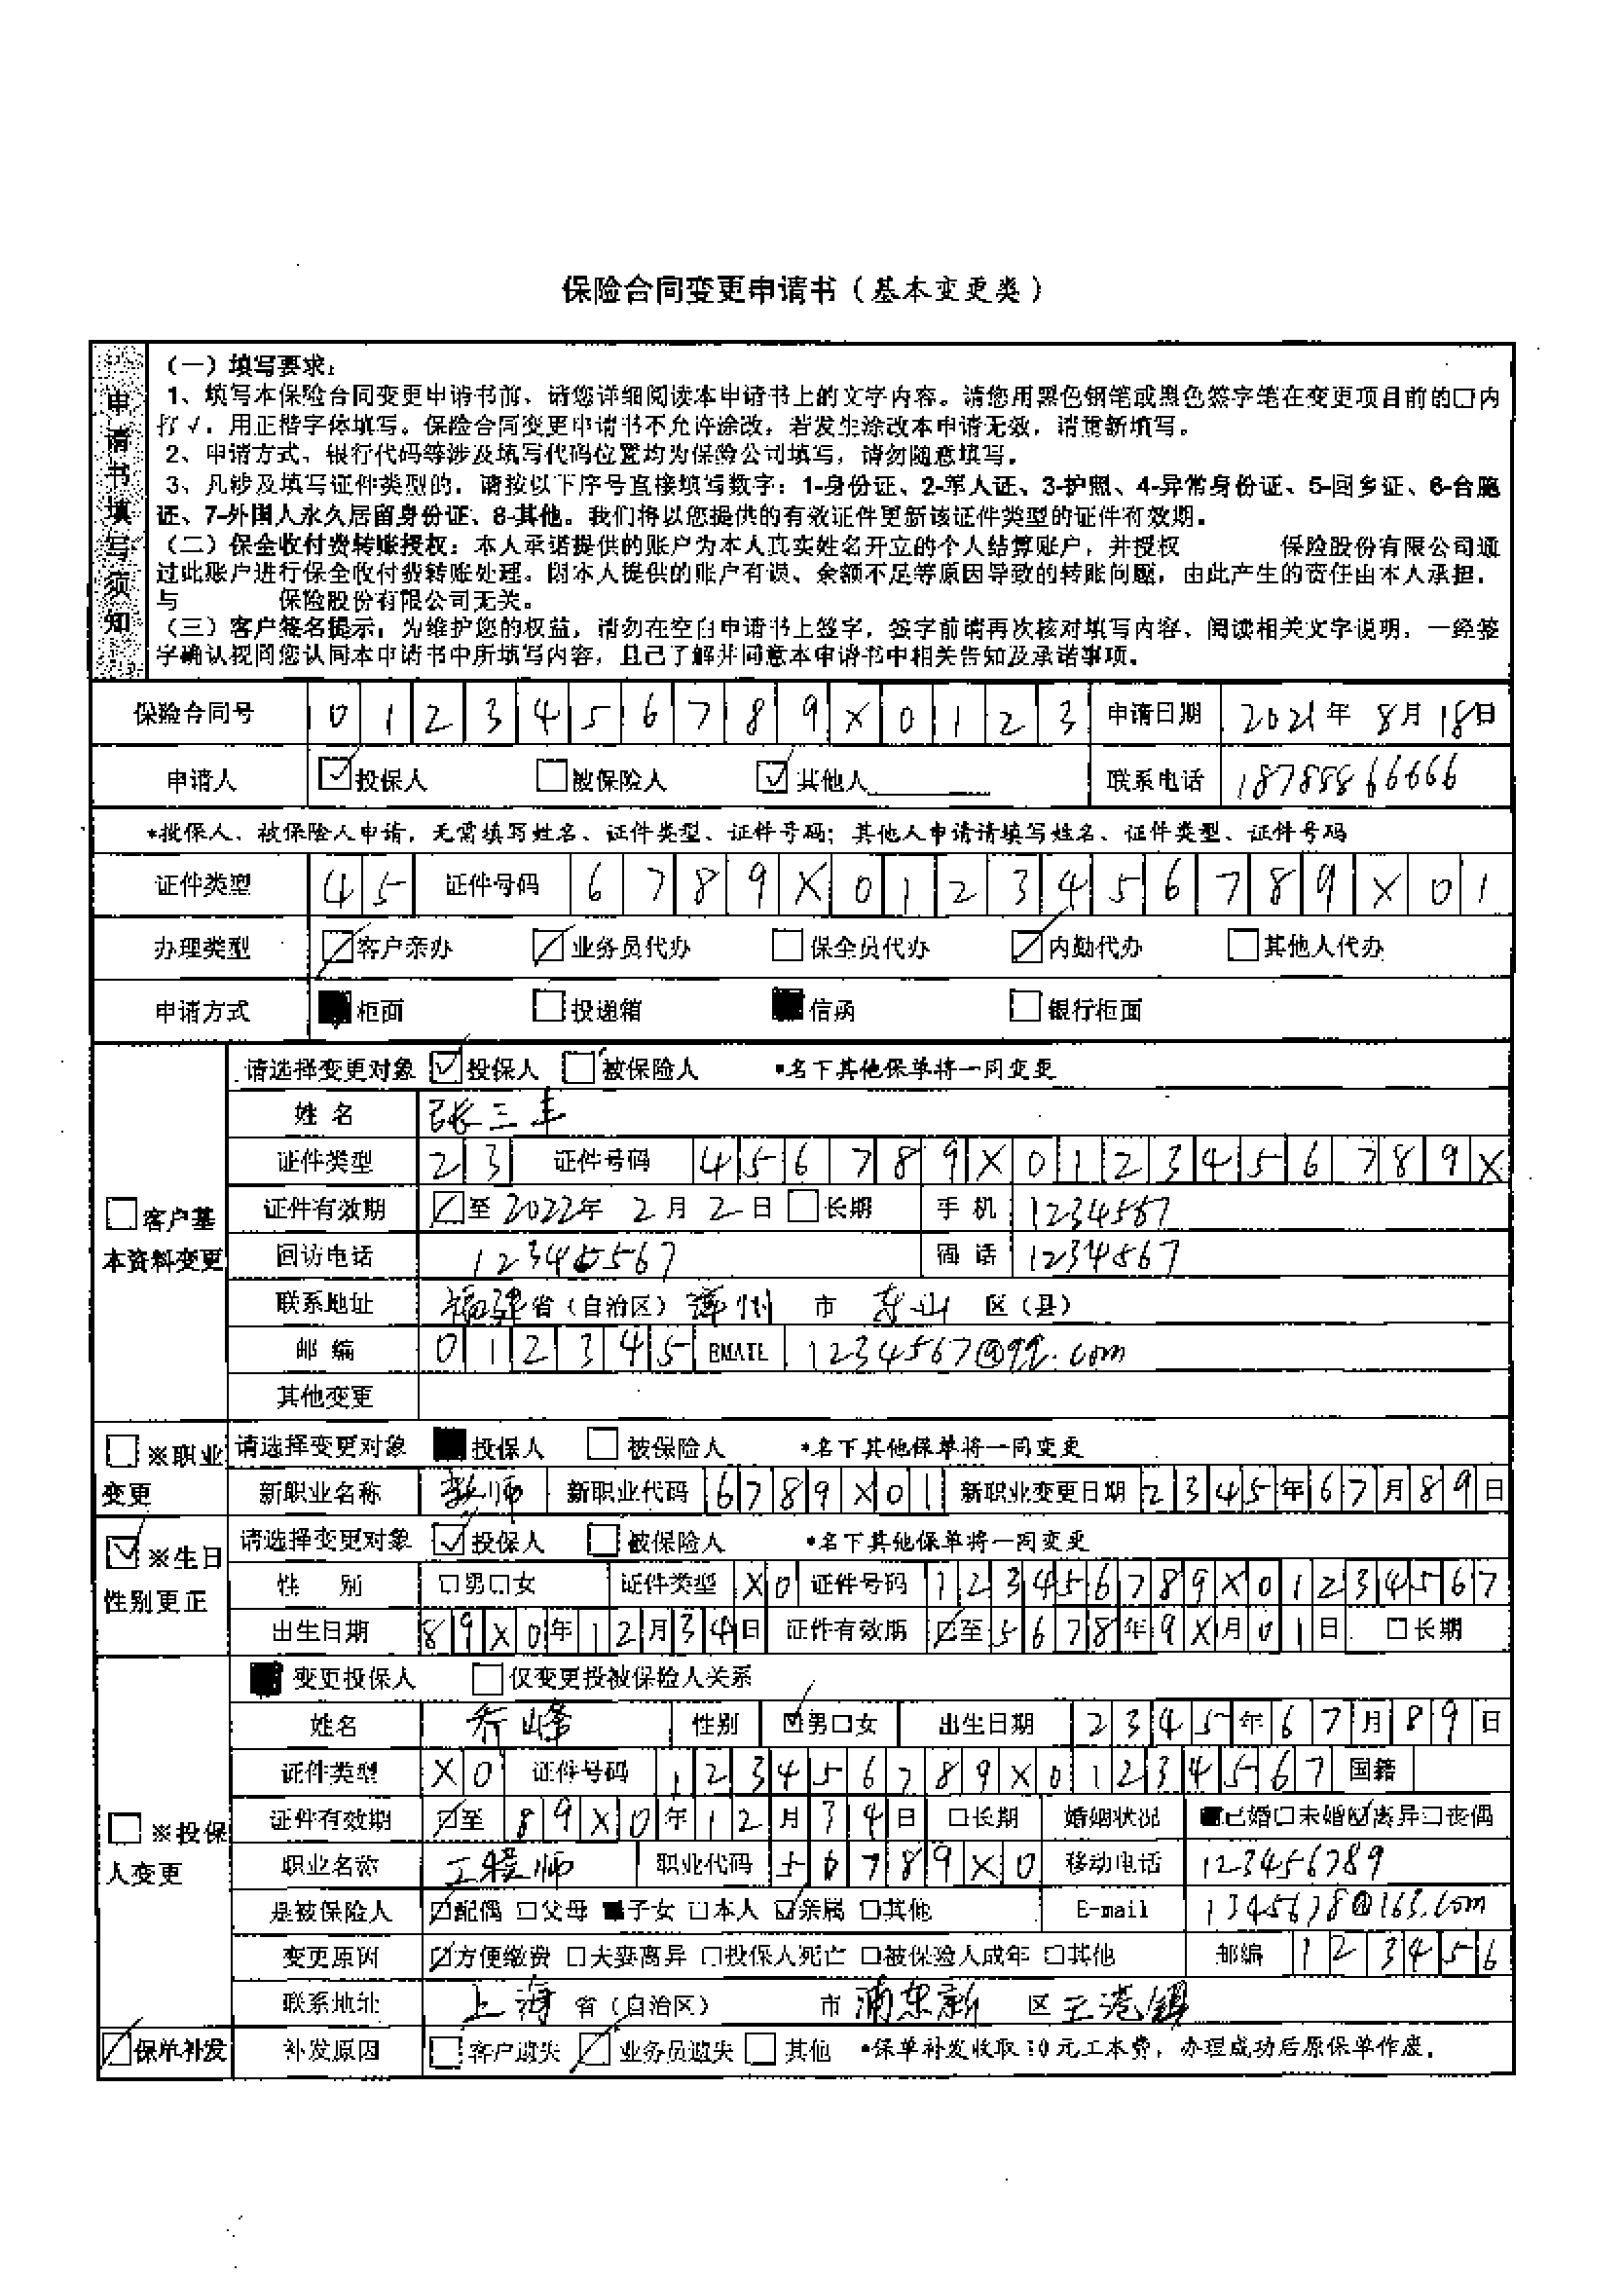 保险合同变更申请书（基本变更类）
申请书填写须知
（一）填写要求：
1、填写本保险合同变更申请书前，请您详细阅读本申请书上的文字内容。请您用黑色钢笔或黑色签字笔在变更项目前的□内
打√，用正楷字体填写。保险合同变更申请书不允许涂改，若发生涂改本申请无效，请重新填写。
2、申请方式、银行代码等涉及填写代码位置均为保险公司填写，请勿随意填写。
3、凡涉及填写证件类型的，请按以下序号直接填写数字：1-身份证、2-军人证、3-护照、4-异常身份证、5-回乡证、6-台胞
证、7-外国人永久居留身份证、8-其他。我们将以您提供的有效证件更新该证件类型的证件有效期。
（二）保全收付费转账授权：本人承诺提供的账户为本人真实姓名开立的个人结算账户，并授权 保险股份有限公司通
过此账户进行保全收付费转账处理。因本人提供的账户有误、余额不足等原因导致的转账问题，由此产生的责任由本人承担，
与 保险股份有限公司无关。
（三）客户签名提示：为维护您的权益，请勿在空白申请书上签字，签字前请再次核对填写内容、阅读相关文字说明，一经签
字确认视同您认同本申请书中所填写内容，且已了解并同意本申请书中相关告知及承诺事项。
保险合同号 0123456789X0123 申请日期 2021年 8月 18日
申请人 ☑投保人 □被保险人 ☑其他人 联系电话 18788866666
*投保人、被保险人申请，无需填写姓名、证件类型、证件号码；其他人申请请填写姓名、证件类型、证件号码
证件类型 45 证件号码 6789X0123456789X01
办理类型 ☑客户亲办 ☑业务员代办 □保全员代办 ☑内勤代办 □其他人代办
申请方式 ■柜面 □投递箱 ■信函 □银行柜面
□客户基本资料变更
请选择变更对象 ☑投保人 □被保险人 *名下其他保单将一同变更
姓名 张三丰
证件类型 23 证件号码 456789X0123456789X
证件有效期 ☑至 2022年 2月 2日 □长期 手机 1234567
回访电话 1234567 固话 1234567
联系地址 福建省（自治区）漳州 市 东山 区（县）
邮编 012345 EMAIL 1234567@qq.com
其他变更
□※职业变更
请选择变更对象 ■投保人 □被保险人 *名下其他保单将一同变更
新职业名称 教师 新职业代码 6789X01 新职业变更日期 2345年67月89日
☑※生日性别更正
请选择变更对象 ☑投保人 □被保险人 *名下其他保单将一同变更
性 别 □男□女 证件类型 X0 证件号码 123456789X01234567
出生日期 89X0年12月34日 证件有效期 ☑至5678年9X月01日 □长期
□※投保人变更
■变更投保人 □仅变更投被保险人关系
姓名 乔峰 性别 ☑男□女 出生日期 2345年67月89日
证件类型 X0 证件号码 123456789X01234567 国籍
证件有效期 ☑至 89X0年12月34日 □长期 婚姻状况 ■已婚□未婚☑离异□丧偶
职业名称 工程师 职业代码 56789X0 移动电话 123456789
是被保险人 ☑配偶 □父母 ■子女 □本人 ☑亲属 □其他 E-mail 1345678@163.com
变更原因 ☑方便缴费 □夫妻离异 □投保人死亡 □被保险人成年 □其他 邮编 123456
联系地址 上海 省（自治区） 市 浦东新 区 王港镇
☑保单补发 补发原因 □客户遗失 ☑业务员遗失 □其他 *保单补发收取10元工本费，办理成功后原保单作废。